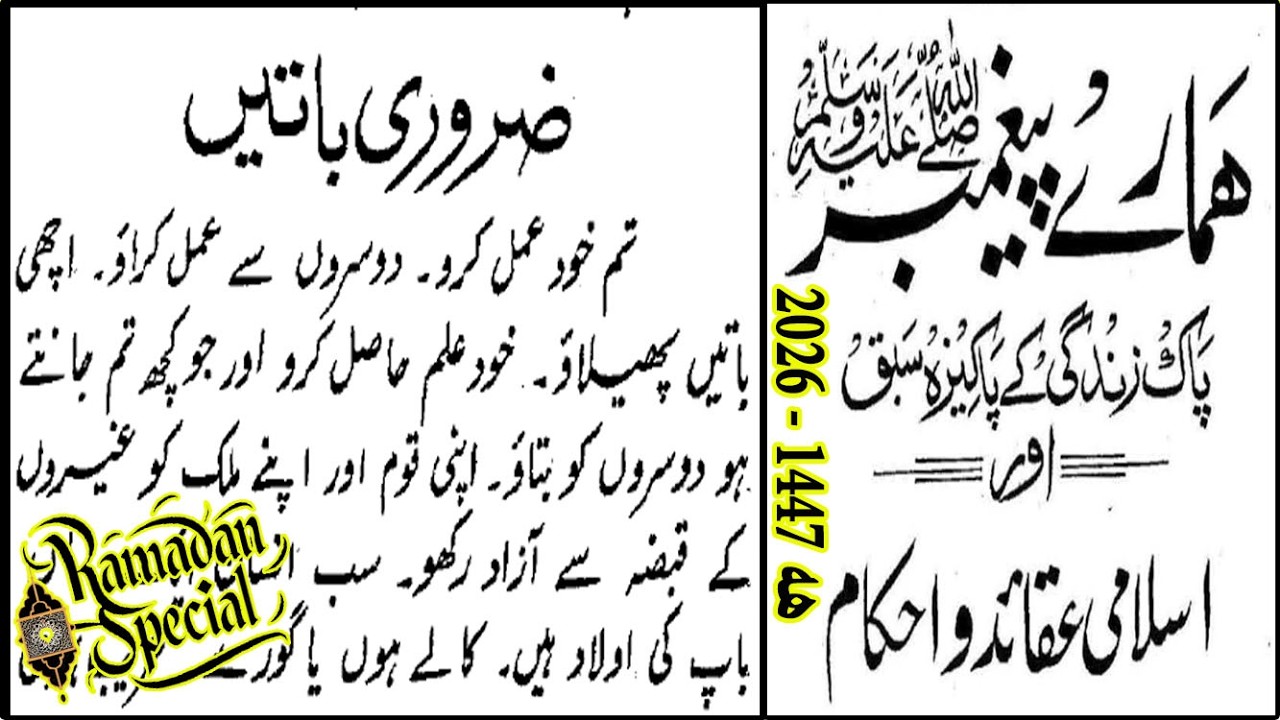 ھمارے پیغمبر صَلَّى اللّٰهُ عَلَيْهِ وَسَلَّم
پاک زندگی کے پاکیزہ سبق
اور
اسلامی عقائد و احکام
2026 - 1447 ھ
ضروری باتیں
تم خود عمل کرو۔ دوسروں سے عمل کراؤ۔ اچھی
باتیں پھیلاؤ۔ خود علم حاصل کرو اور جو کچھ تم جانتے
ہو دوسروں کو بتاؤ۔ اپنی قوم اور اپنے ملک کو غیروں
کے قبضہ سے آزاد رکھو۔ سب انسان
باپ کی اولاد ہیں۔ کالے ہوں یا گورے
Ramadan
Special